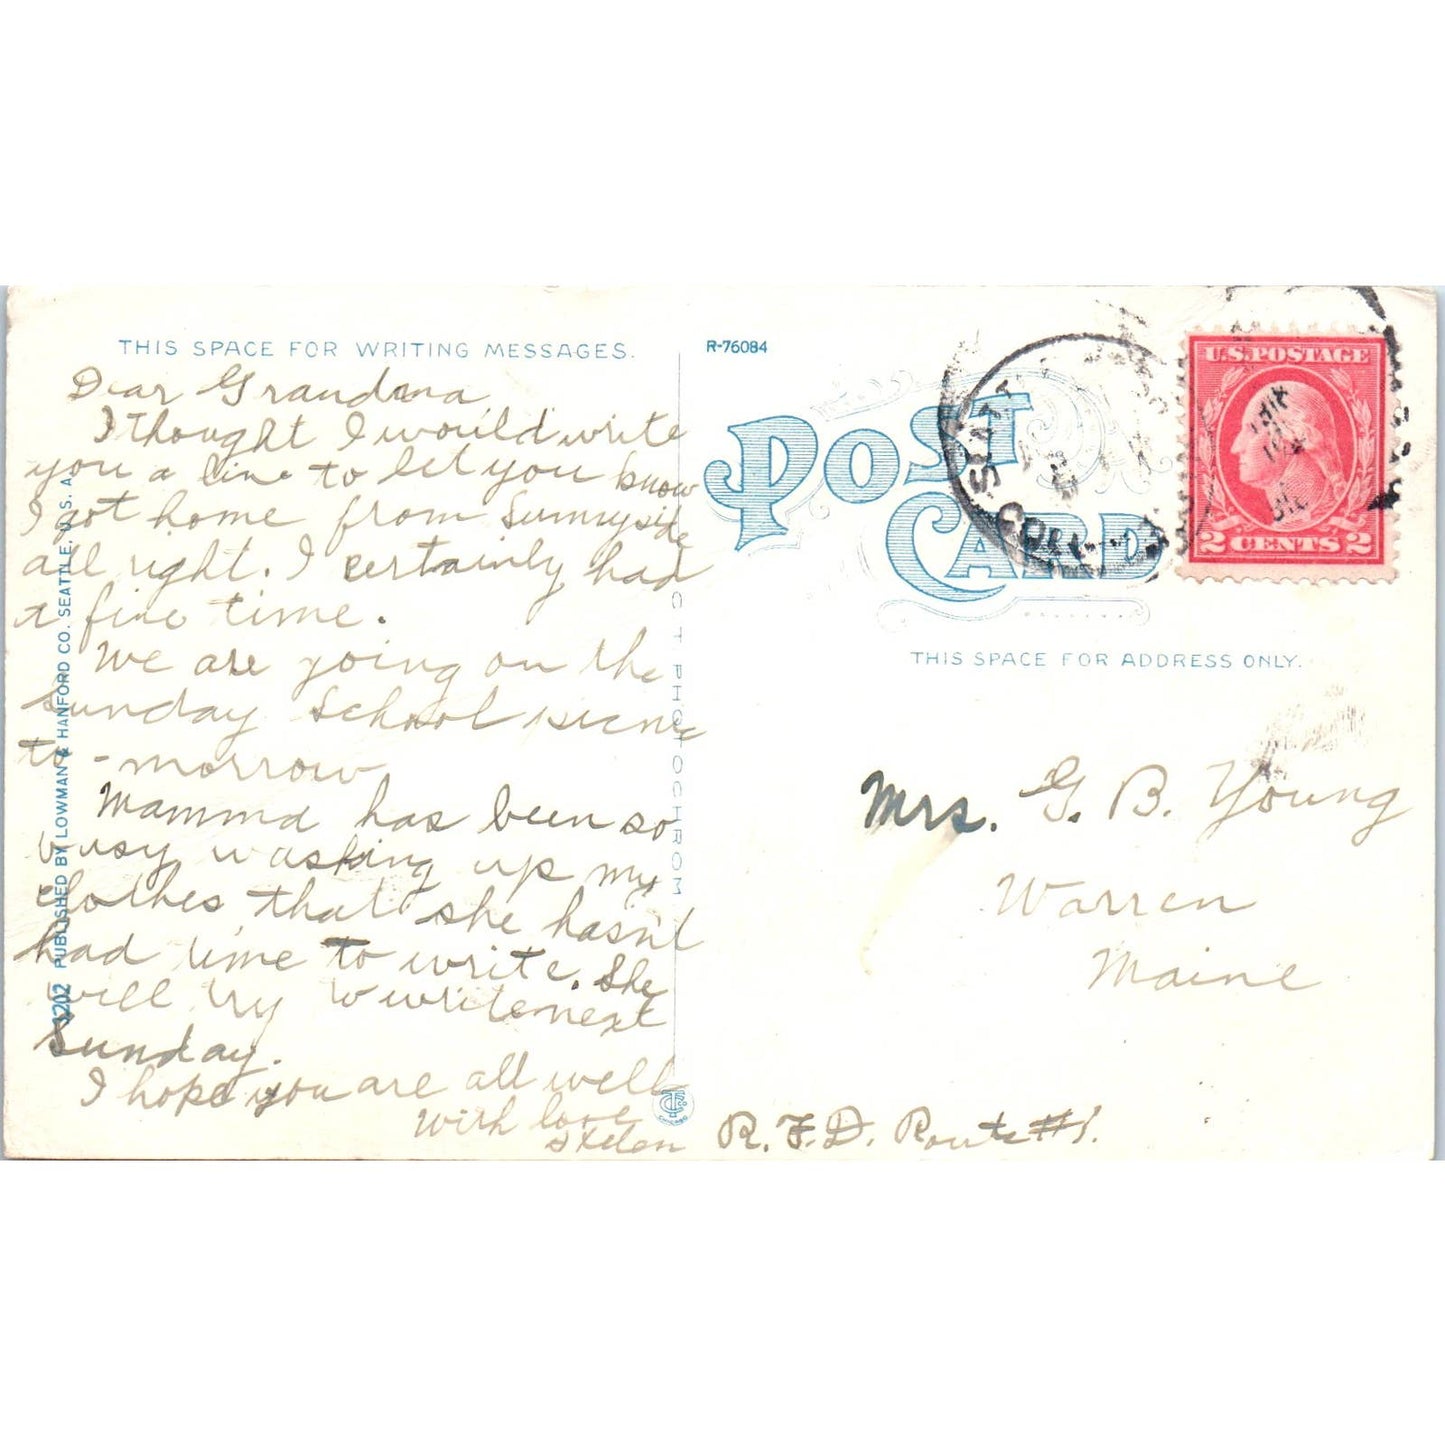 THIS SPACE FOR WRITING MESSAGES.
Dear Grandma
I thought I would write
you a line to let you know
I got home from Sunnyside
all right. I certainly had
a fine time.
We are going on the
Sunday School picnic
to-morrow
Mamma has been so
busy washing up my
clothes that she hasn't
had time to write. She
will try to write next
Sunday.
I hope you are all well
With love
Helen
3202 PUBLISHED BY LOWMAN & HANFORD CO. SEATTLE, U.S.A.
CT PHOTOCHROM
CHICAGO
R-76084
POST
CARD
SEATT
U.S. POSTAGE
2 CENTS 2
THIS SPACE FOR ADDRESS ONLY.
Mrs. G. B. Young
Warren
Maine
R.F.D. Route #1.